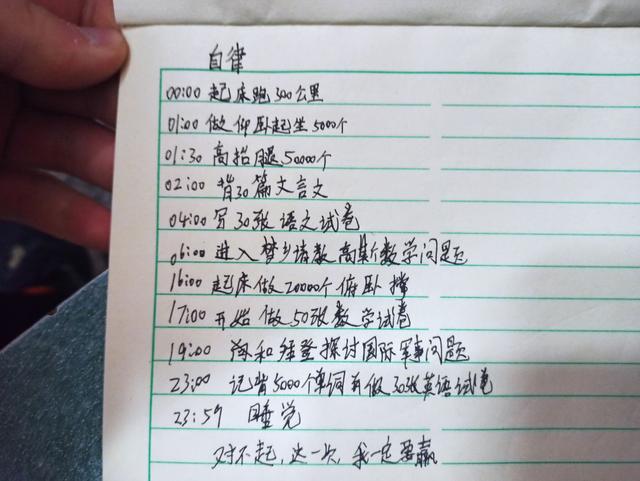 自律
00:00 起床跑300公里
01:00 做仰卧起坐5000个
01:30 高抬腿50000个
02:00 背30篇文言文
04:00 写30张语文试卷
06:00 进入梦乡请教高斯数学问题
16:00 起床做20000个俯卧撑
17:00 开始做50张数学试卷
19:00 和拜登探讨国际军事问题
23:00 记背5000个单词并做30张英语试卷
23:59 睡觉
对不起,这一次,我一定要赢